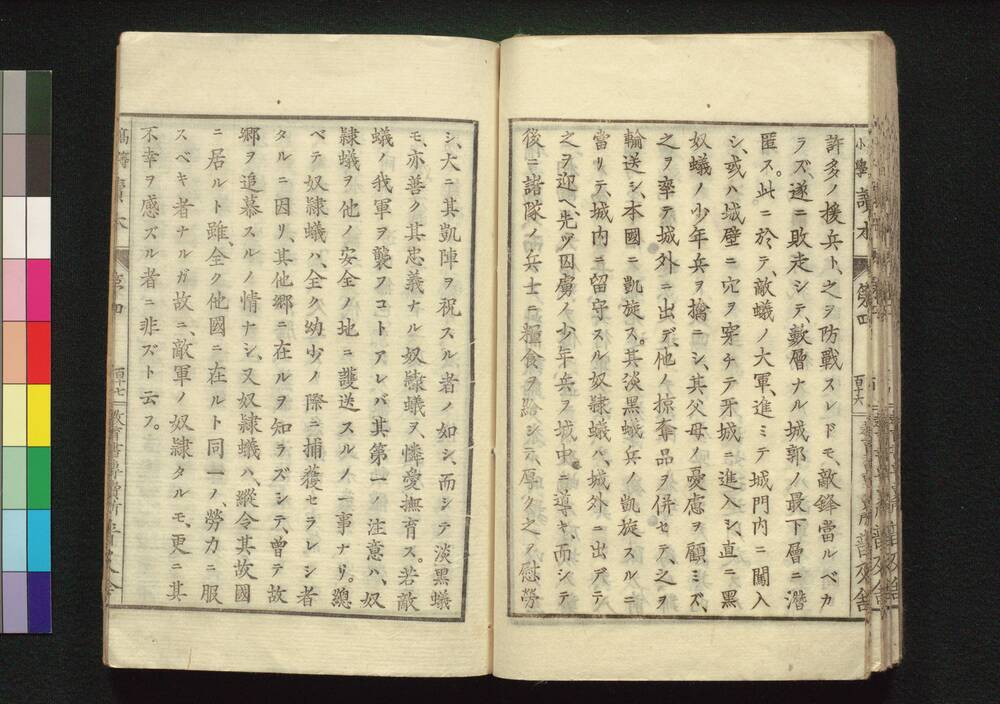 小學讀本
第四
百十六
普及舍
許多ノ援兵ト、之ヲ防戰スレドモ、敵鋒當ルベカ
ラズ、遂ニ敗走シテ、數層ナル城郭ノ最下層ニ潛
匿ス。此ニ於テ、敵蟻ノ大軍、進ミテ城門内ニ闖入
シ、或ハ城壁ニ穴ヲ穿チテ牙城ニ進入シ、直ニ黑
奴蟻ノ少年兵ヲ擒ニシ、其父母ノ憂慮ヲ顧ミズ、
之ヲ率テ城外ニ出デ、他ノ掠奪品ヲ併セテ、之ヲ
輸送シ、本國ニ凱旋ス。其淡黑蟻兵ノ凱旋スルニ
當リテ、城内ニ留守スル奴隷蟻ハ、城外ニ出デテ
之ヲ迎ヘ、先ヅ囚虜ノ少年兵ヲ城中ニ導キ、而シテ
後ニ諸隊ノ兵士ニ糧食ヲ給シテ、厚ク之ヲ慰勞
シ、大ニ其凱陣ヲ祝スル者ノ如シ、而シテ淡黑蟻
モ、亦善ク其忠義ナル奴隷蟻ヲ、憐愛撫育ス。若敵
蟻ノ我軍ヲ襲フコトアレバ、其第一ノ注意ハ、奴
隷蟻ヲ他ノ安全ノ地ニ護送スルノ一事ナリ。總
ベテ奴隷蟻ハ、全ク幼少ノ際ニ捕獲セラレシ者
タルニ因リ、其他郷ニ在ルヲ知ラズシテ、曾テ故
郷ヲ追慕スルノ情ナシ、又奴隷蟻ハ、縱令其故國
ニ居ルト雖、全ク他國ニ在ルト同一ノ勞力ニ服
スベキ者ナルガ故ニ、敵軍ノ奴隷タルモ、更ニ其
不幸ヲ感ズル者ニ非ズト云フ。
高等讀本
第四
百十七
教育書專賣所